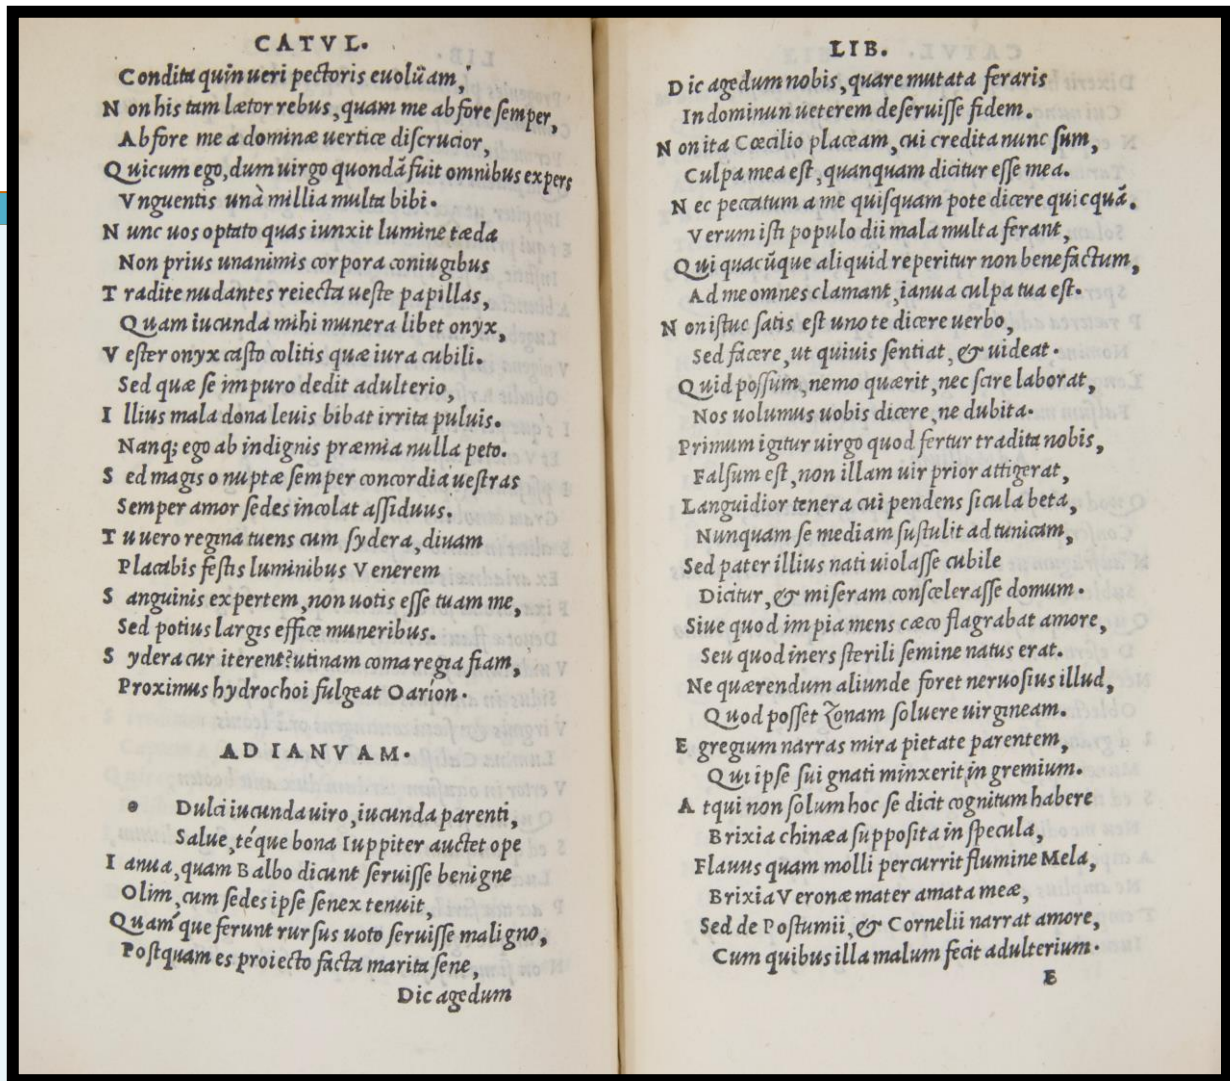 CATVL.
Condita quin ueri pectoris euolũam,
N on his tam lætor rebus, quam me abfore semper,
Abfore me a dominæ uertice discrucior,
Q uicum ego, dum uirgo quondã fuit omnibus expers
Vnguentis unà millia multa bibi.
N unc uos optato quas iunxit lumine tæda
Non prius unanimis corpora coniugibus
T radite nudantes reiecta ueste papillas,
Quam iucunda mihi munera libet onyx,
V ester onyx casto colitis quæ iura cubili.
Sed quæ se impuro dedit adulterio,
I llius mala dona leuis bibat irrita puluis.
Nanq; ego ab indignis præmia nulla peto.
S ed magis o nuptæ semper concordia uestras
Semper amor sedes incolat assiduus.
T u uero regina tuens cum sydera, diuam
Placabis festis luminibus Venerem
S anguinis expertem, non uotis esse tuam me,
Sed potius largis effice muneribus.
S ydera cur iterent? utinam coma regia fiam,
Proximus hydrochoi fulgeat Oaríon.
AD IANVAM.
o Dulci iucunda uiro, iucunda parenti,
Salue, téque bona Iuppiter auctet ope
I anua, quam Balbo dicunt seruisse benigne
Olim, cum sedes ipse senex tenuit,
Quam´que ferunt rursus uoto seruisse maligno,
Postquam es proiecto facta marita sene,
Dic agedum
LIB.
D ic agedum nobis, quare mutata feraris
In dominun ueterem deseruisse fidem.
N on ita Cœcilio placeam, cui credita nunc sum,
Culpa mea est, quanquam dicitur esse mea.
N ec peccatum a me quisquam pote dicere quicquã.
Verum isti populo dii mala multa ferant,
Q ui quacũque aliquid reperitur non bene factum,
Ad me omnes clamant, ianua culpa tua est.
N on istuc satis est uno te dicere uerbo,
Sed facere, ut quiuis sentiat, & uideat.
Q uid possum, nemo quærit, nec scire laborat,
Nos uolumus uobis dicere, ne dubita.
Primum igitur uirgo quod fertur tradita nobis,
Falsum est, non illam uir prior attigerat,
Languidior tenera cui pendens sicula beta,
Nunquam se mediam sustulit ad tunicam,
Sed pater illius nati uiolasse cubile
Dicitur, & miseram conscelerasse domum.
Siue quod impia mens cæco flagrabat amore,
Seu quod iners sterili semine natus erat.
Ne quærendum aliunde foret neruosius illud,
Quod posset zonam soluere uirgineam.
E gregium narras mira pietate parentem,
Qui ipse sui gnati minxerit in gremium.
A tqui non solum hoc se dicit cognitum habere
Brixia chinæa supposita in specula,
Flauus quam molli percurrit flumine Mela,
Brixia Veronæ mater amata meæ,
Sed de Postumii, & Cornelii narrat amore,
Cum quibus illa malum fecit adulterium.
E